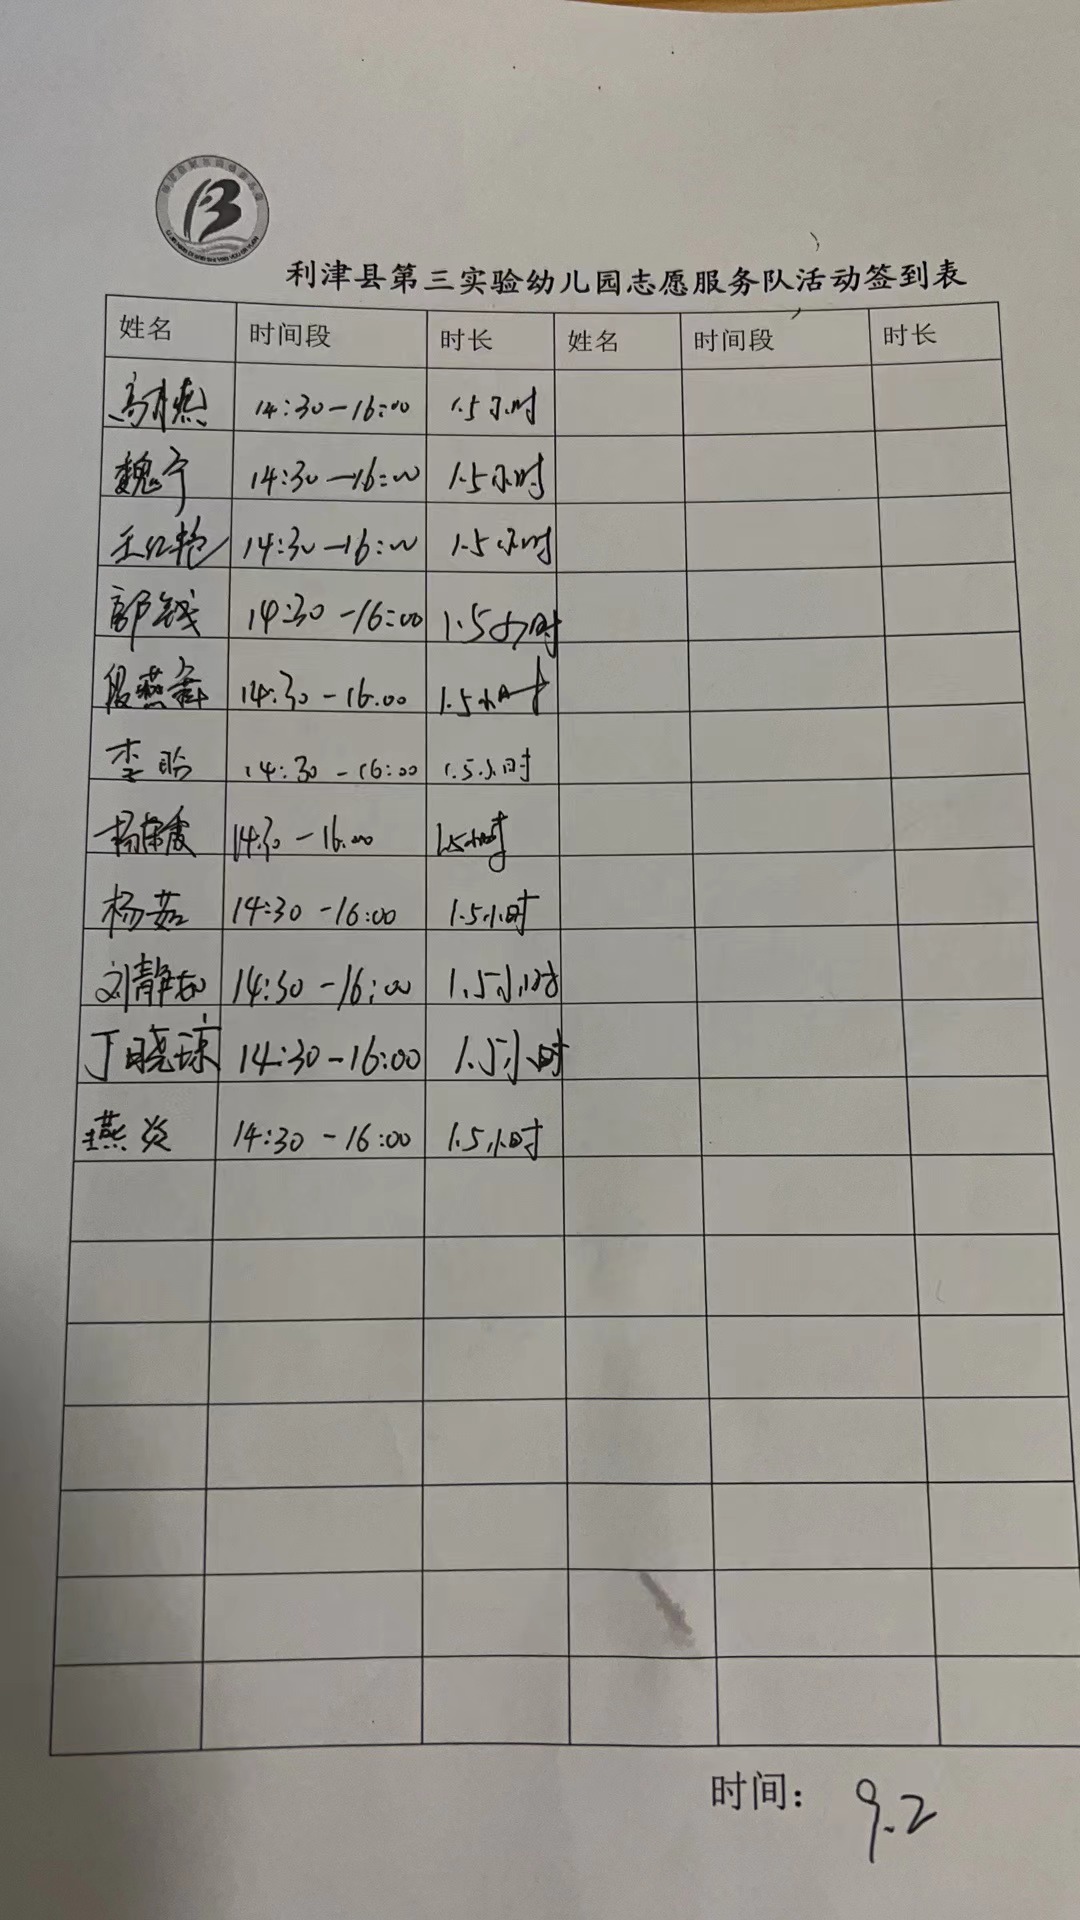 利津县第三实验幼儿园志愿服务队活动签到表
姓名 时间段 时长 姓名 时间段 时长
14:30-16:00 1.5小时
魏宁 14:30-16:00 1.5小时
14:30-16:00 1.5小时
14:30-16:00 1.5小时
段燕 14:30-16.00 1.5小时
李盼 14:30-16:00 1.5小时
杨荣霞 14:30-16.00 1.5小时
杨茹 14:30-16:00 1.5小时
刘静 14:30-16:00 1.5小时
丁晓琼 14:30-16:00 1.5小时
14:30-16:00 1.5小时
时间: 9.2